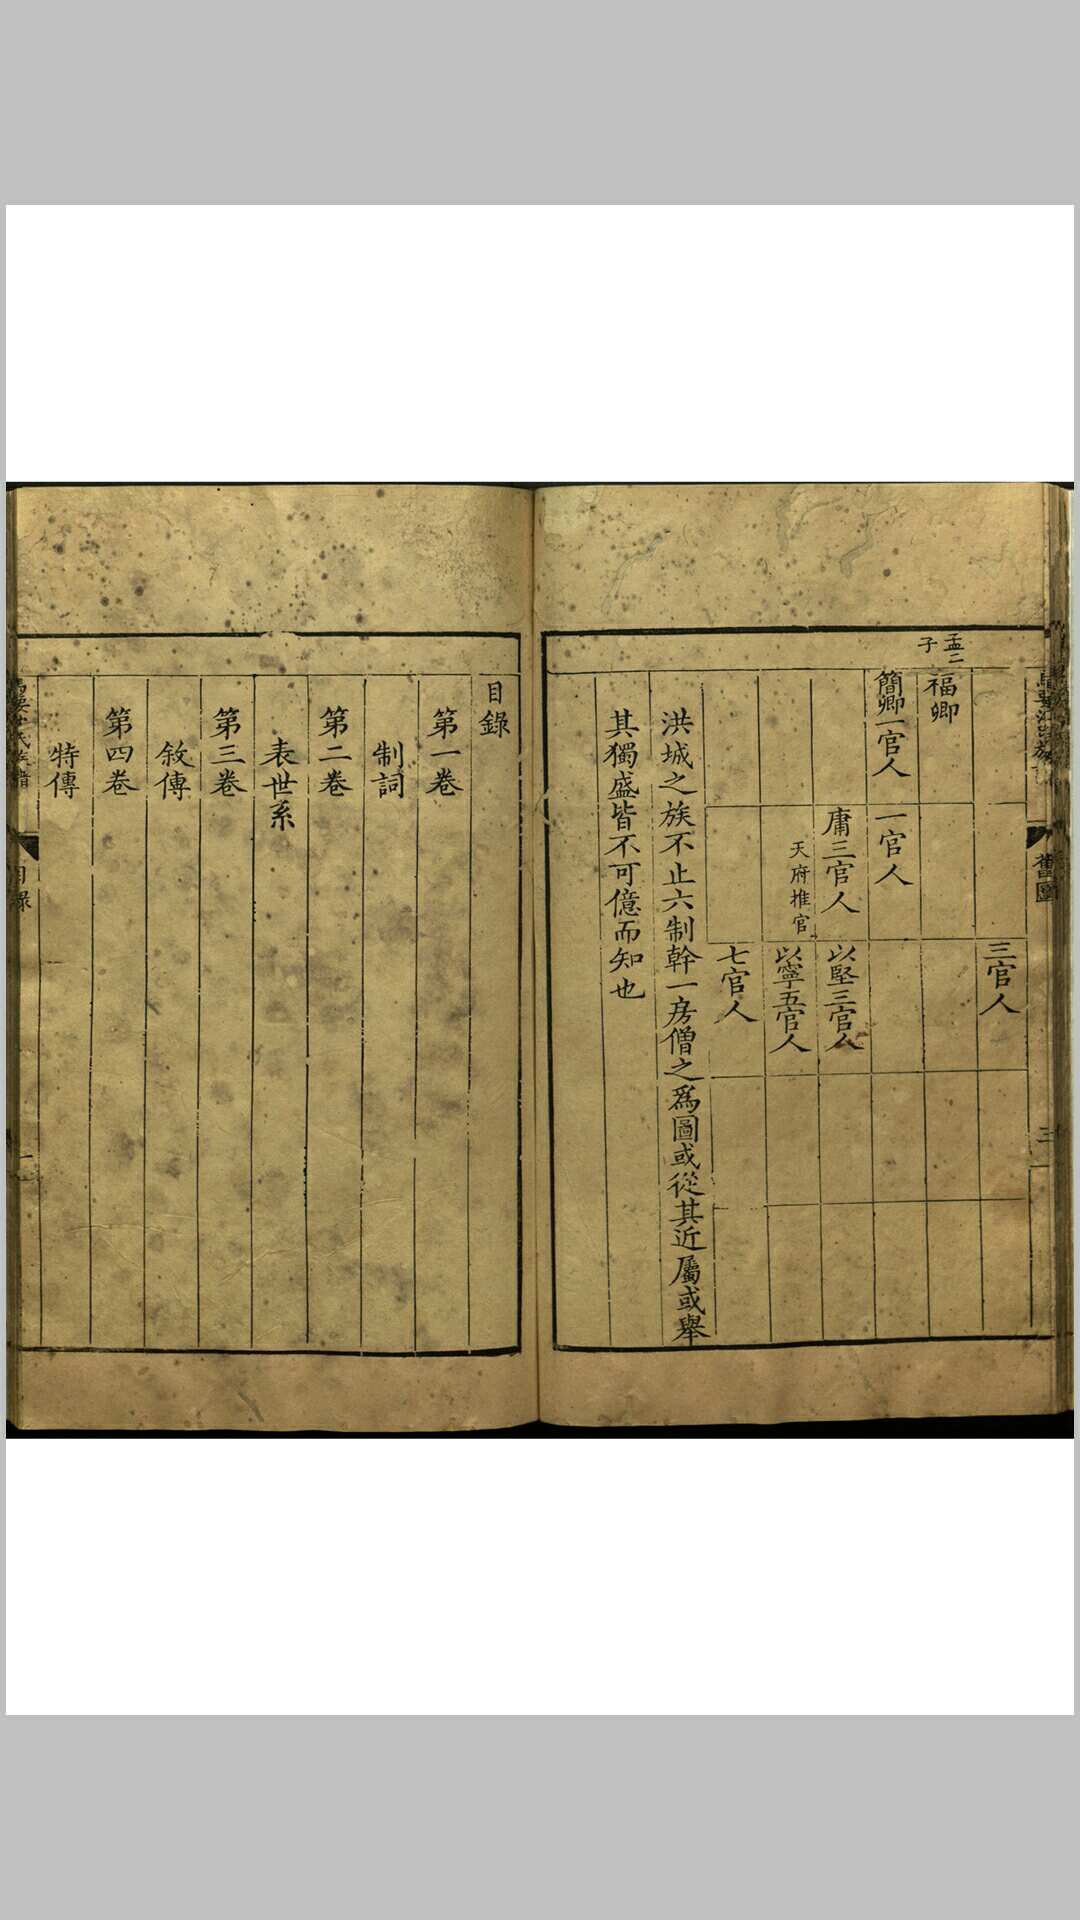 舊圖
三
三官人
孟二
子
福卿
簡卿一官人
一官人
庸三官人
以堅三官人
天府推官
以寧五官人
七官人
洪城之族不止六制幹一房僧之爲圖或從其近屬或舉
其獨盛皆不可億而知也
目錄
第一卷
制詞
第二卷
表世系
第三卷
敘傳
第四卷
特傳
目錄
一